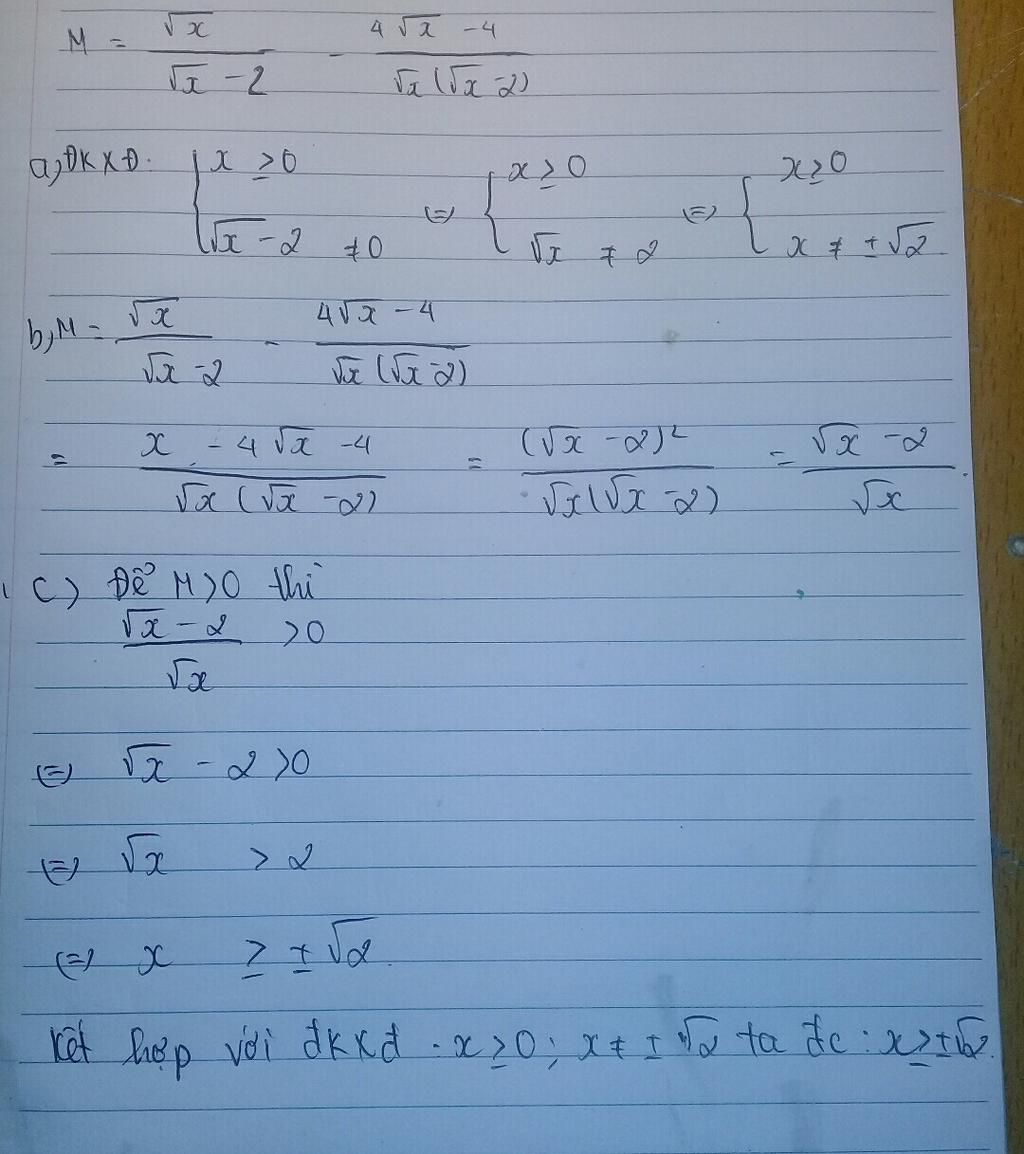 M = √x / (√x - 2) - (4√x - 4) / (√x(√x - 2))
a, ĐKXĐ. { x ≥ 0 ; √x - 2 ≠ 0 (=) { x ≥ 0 ; √x ≠ 2 (=) { x ≥ 0 ; x ≠ ±√2
b, M = √x / (√x - 2) - (4√x - 4) / (√x(√x - 2))
= (x - 4√x - 4) / (√x(√x - 2)) = (√x - 2)² / (√x(√x - 2)) = (√x - 2) / √x.
c) Để M > 0 thì
(√x - 2) / √x > 0
(=) √x - 2 > 0
(=) √x > 2
(=) x ≥ ±√2.
Kết hợp với đkxđ. x ≥ 0; x ≠ ±√2 ta đc: x ≥ ±√2.